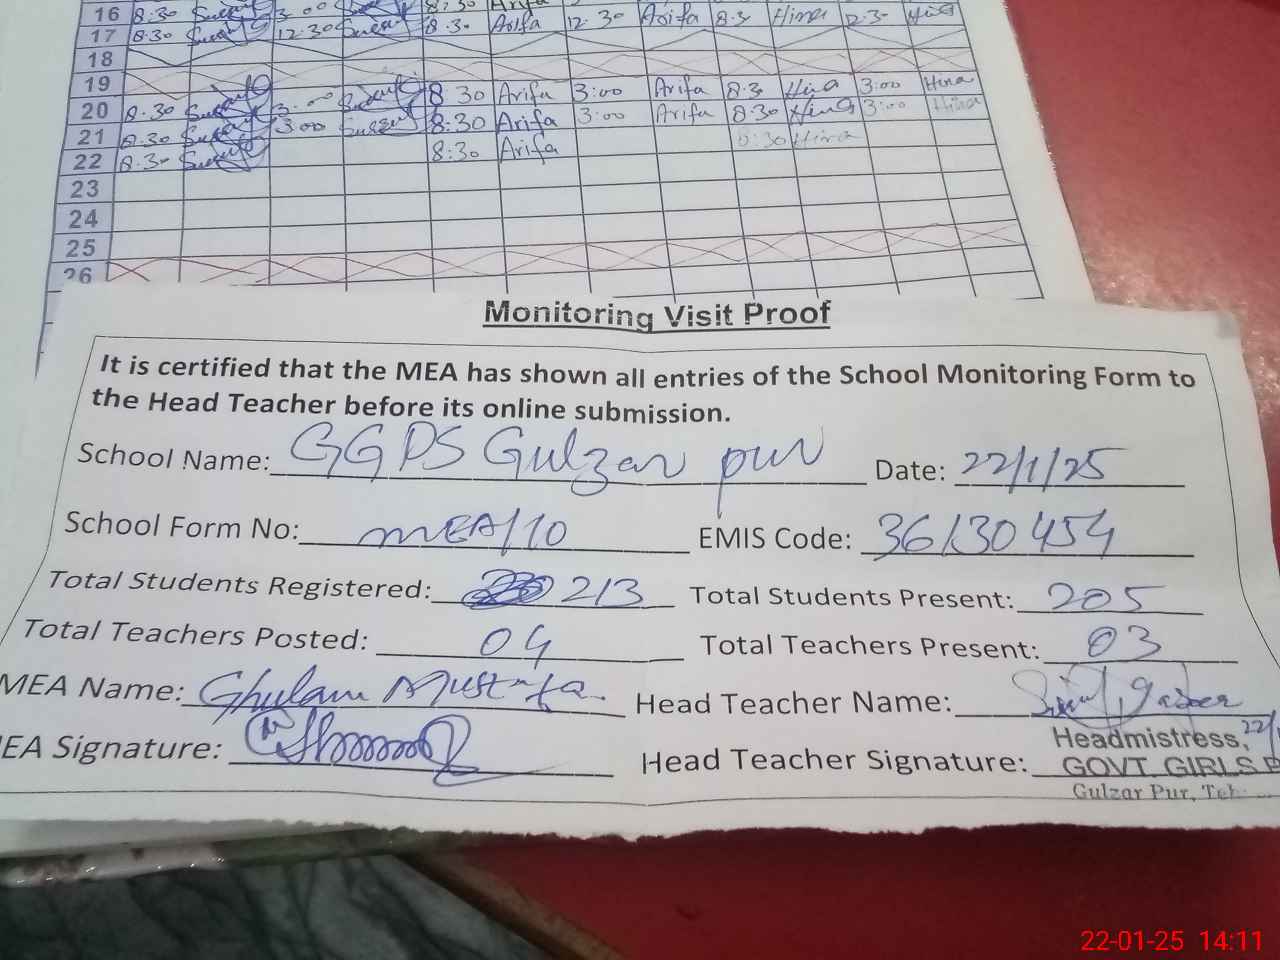 16 8:30 3:00 8:30 Arifa
17 8:30 12:30 8:30 Arifa 12:30 Arifa 8:3 Hina 12:30 Hina
18
19 8 30 Arifa 3:00 Arifa 8:3 Hina 3:00 Hina
20 8:30 3:00 8:30 Arifa 3:00 Arifa 8:30 Hina 3:00 Hina
21 8:30 3:00 8:30 Arifa 8:30 Hina
22 8:30
23
24
25
26
Monitoring Visit Proof
It is certified that the MEA has shown all entries of the School Monitoring Form to
the Head Teacher before its online submission.
School Name: GGPS Gulzar pur Date: 22/1/25
School Form No: MEA/10 EMIS Code: 36130454
Total Students Registered: 213 Total Students Present: 205
Total Teachers Posted: 04 Total Teachers Present: 03
MEA Name: Ghulam Mustafa. Head Teacher Name:
EA Signature: Head Teacher Signature:
Headmistress, 22/
GOVT. GIRLS P
Gulzar Pur, Teh:
22-01-25 14:11